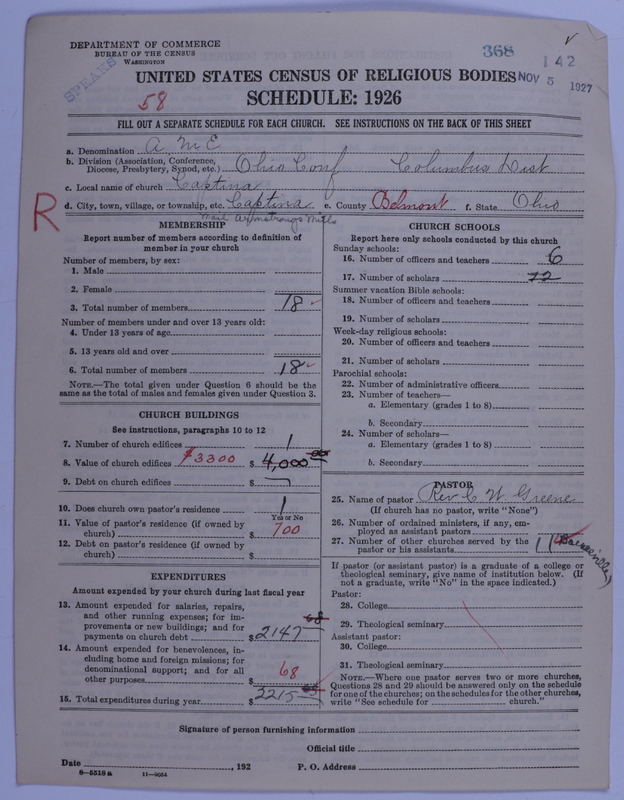 DEPARTMENT OF COMMERCE
BUREAU OF THE CENSUS
WASHINGTON
SPEARS
368
142
NOV 5 1927
UNITED STATES CENSUS OF RELIGIOUS BODIES
58
SCHEDULE: 1926
FILL OUT A SEPARATE SCHEDULE FOR EACH CHURCH. SEE INSTRUCTIONS ON THE BACK OF THIS SHEET
a. Denomination A M E
b. Division (Association, Conference, Diocese, Presbytery, Synod, etc.) Ohio Conf Columbus Dist
c. Local name of church Captina
R
d. City, town, village, or township, etc. Captina e. County Belmont f. State Ohio
Mail Armstrongs Mills
MEMBERSHIP
Report number of members according to definition of
member in your church
Number of members, by sex:
1. Male
2. Female
3. Total number of members 18
Number of members under and over 13 years old:
4. Under 13 years of age
5. 13 years old and over
6. Total number of members 18
NOTE.—The total given under Question 6 should be the
same as the total of males and females given under Question 3.
CHURCH BUILDINGS
See instructions, paragraphs 10 to 12
7. Number of church edifices 1
8. Value of church edifices $3300 $ 4,000 00
9. Debt on church edifices $
10. Does church own pastor's residence 1
Yes or No
11. Value of pastor's residence (if owned by
church) $ 700
12. Debt on pastor's residence (if owned by
church) $
EXPENDITURES
Amount expended by your church during last fiscal year
13. Amount expended for salaries, repairs,
and other running expenses; for im-
provements or new buildings; and for
payments on church debt $ 2147 68
14. Amount expended for benevolences, in-
cluding home and foreign missions; for
denominational support; and for all
other purposes $ 68
15. Total expenditures during year $ 2215
CHURCH SCHOOLS
Report here only schools conducted by this church
Sunday schools:
16. Number of officers and teachers 6
17. Number of scholars 72
Summer vacation Bible schools:
18. Number of officers and teachers
19. Number of scholars
Week-day religious schools:
20. Number of officers and teachers
21. Number of scholars
Parochial schools:
22. Number of administrative officers
23. Number of teachers—
a. Elementary (grades 1 to 8)
b. Secondary
24. Number of scholars—
a. Elementary (grades 1 to 8)
b. Secondary
PASTOR
25. Name of pastor Rev C W Greene
(If church has no pastor, write "None")
26. Number of ordained ministers, if any, em-
ployed as assistant pastors
27. Number of other churches served by the
pastor or his assistants 1
If pastor (or assistant pastor) is a graduate of a college or
theological seminary, give name of institution below. (If
not a graduate, write "No" in the space indicated.)
Pastor:
28. College
29. Theological seminary
Assistant pastor:
30. College
31. Theological seminary
NOTE.—Where one pastor serves two or more churches,
Questions 28 and 29 should be answered only on the schedule
for one of the churches; on the schedules for the other churches,
write "See schedule for church."
Signature of person furnishing information
Official title
Date , 192 P. O. Address
8—5518a 11—9054